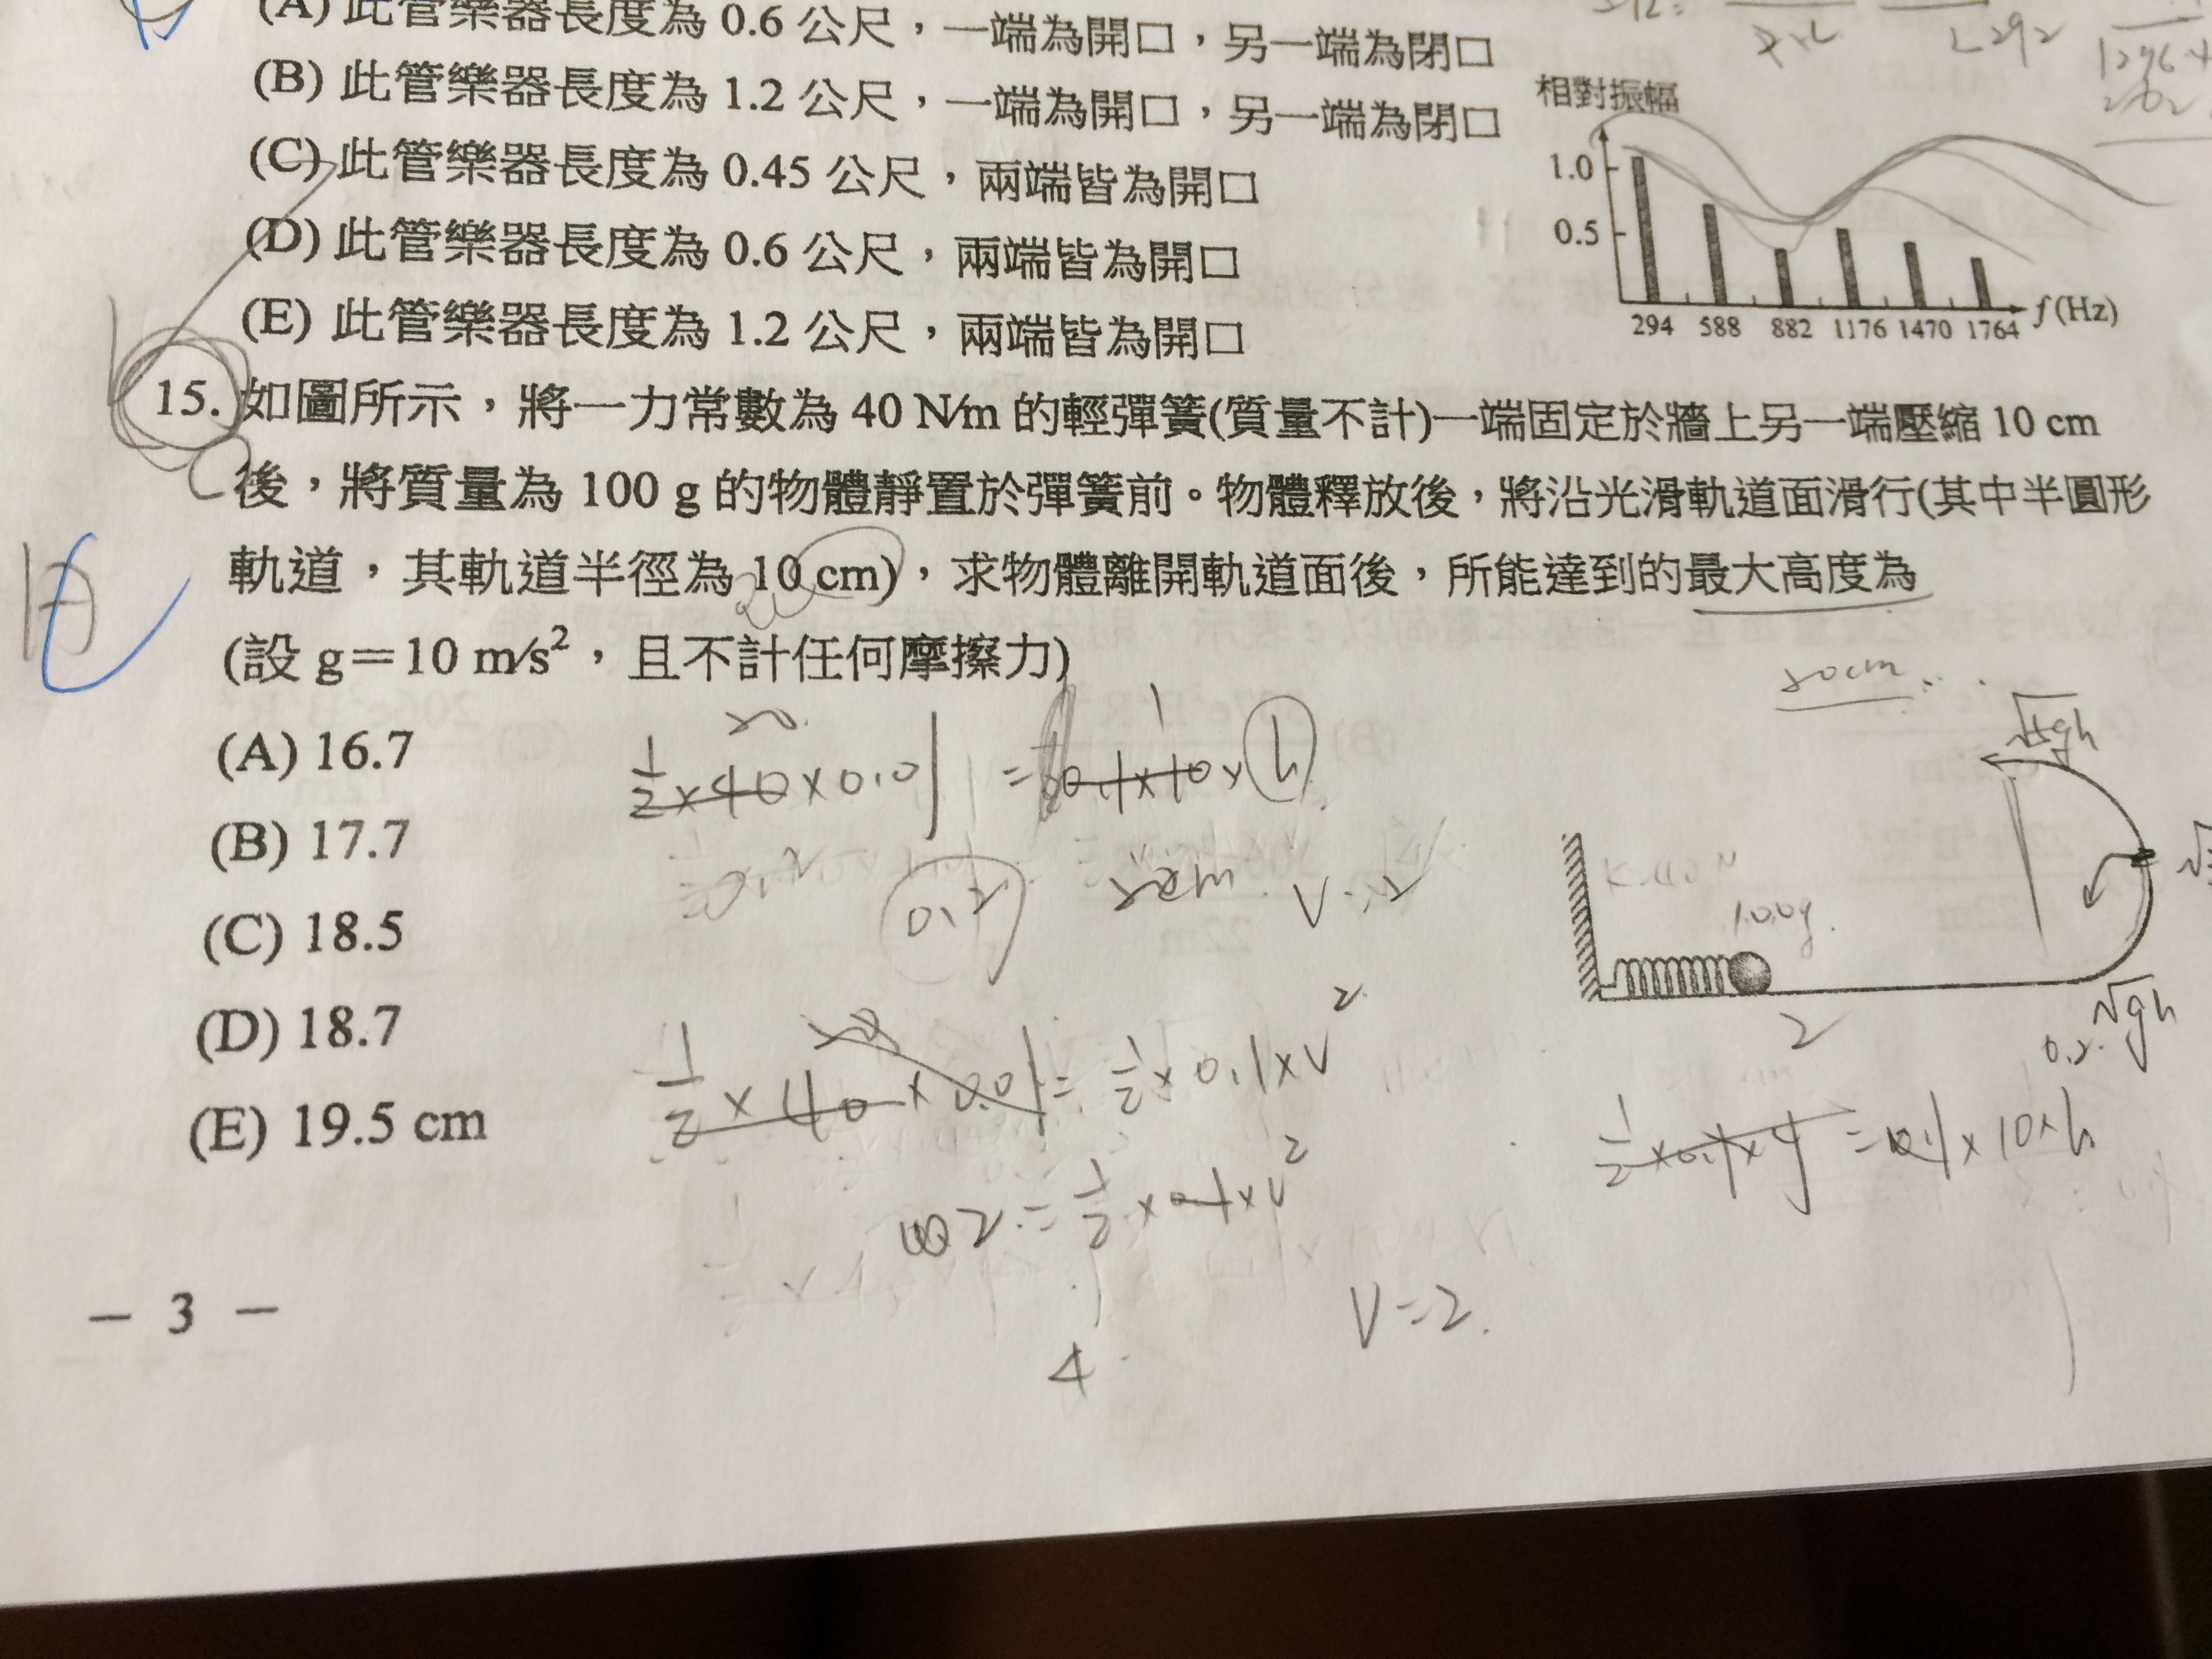 (A) 此管樂器長度為 0.6 公尺，一端為開口，另一端為閉口
(B) 此管樂器長度為 1.2 公尺，一端為開口，另一端為閉口
(C) 此管樂器長度為 0.45 公尺，兩端皆為開口
(D) 此管樂器長度為 0.6 公尺，兩端皆為開口
(E) 此管樂器長度為 1.2 公尺，兩端皆為開口
相對振幅
1.0
0.5
294 588 882 1176 1470 1764 f(Hz)
15. 如圖所示，將一力常數為 40 N/m 的輕彈簧(質量不計)一端固定於牆上另一端壓縮 10 cm
後，將質量為 100 g 的物體靜置於彈簧前。物體釋放後，將沿光滑軌道面滑行(其中半圓形
軌道，其軌道半徑為 10 cm)，求物體離開軌道面後，所能達到的最大高度為
(設 g＝10 m/s²，且不計任何摩擦力)
(A) 16.7
(B) 17.7
(C) 18.5
(D) 18.7
(E) 19.5 cm
20
1/2×40×0.01 = 0.1×10×h
0.2
1/2×40×0.01 = 1/2×0.1×V²
2 = 1/2×0.1×V²
4
V=2.
100g.
2
√gh
1/2×0.1×4 = 0.1×10×h
－ 3 －